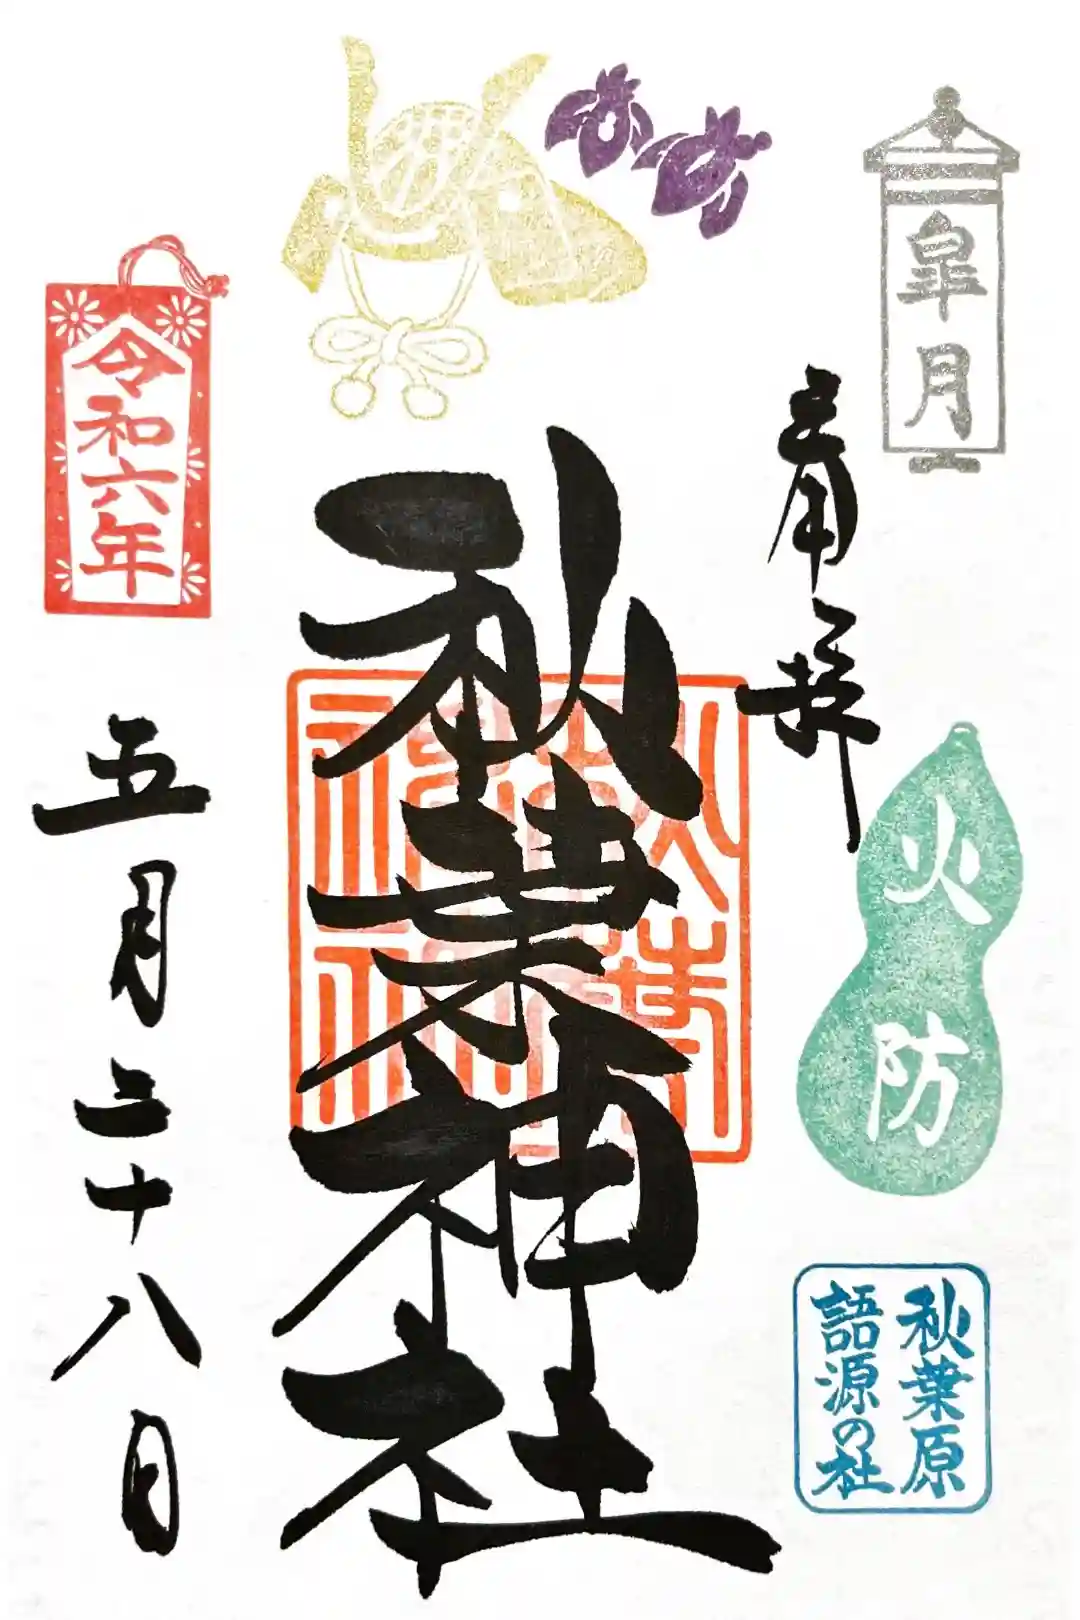 皐月
奉拝
火防
秋葉原
語源の社
秋葉神社
秋葉
神社
令和六年
五月二十八日